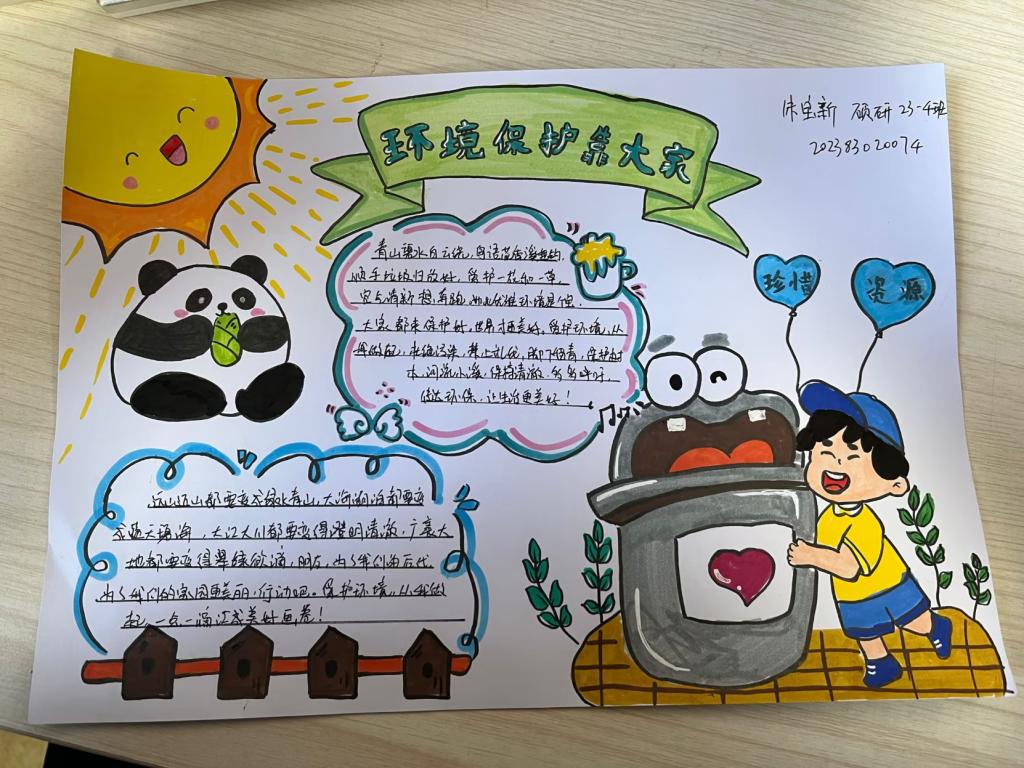 环境保护靠大家
硕研 23-4班
202383020074
青山碧水白云绕,鸟语花香
顺手垃圾归放好,爱护一花和一草,
空气清新
大家都来保护好,世界才更美好。爱护环境,从
我做起,杜绝污染,禁止乱伐,脚下留青,保护树
木,河流小溪,保持清澈,
低碳环保,让生活更美好!
珍惜
资源
远山近山都要变成绿色青山,大海湖泊都要变
成蓝天碧海,大江大川都要变得澄明清澈,广袤大
地都要变得翠绿欲滴,朋友,为了我们的后代,
为了我们的家园更美丽,行动吧。保护环境,从我做
起,一点一滴汇成美好画卷!